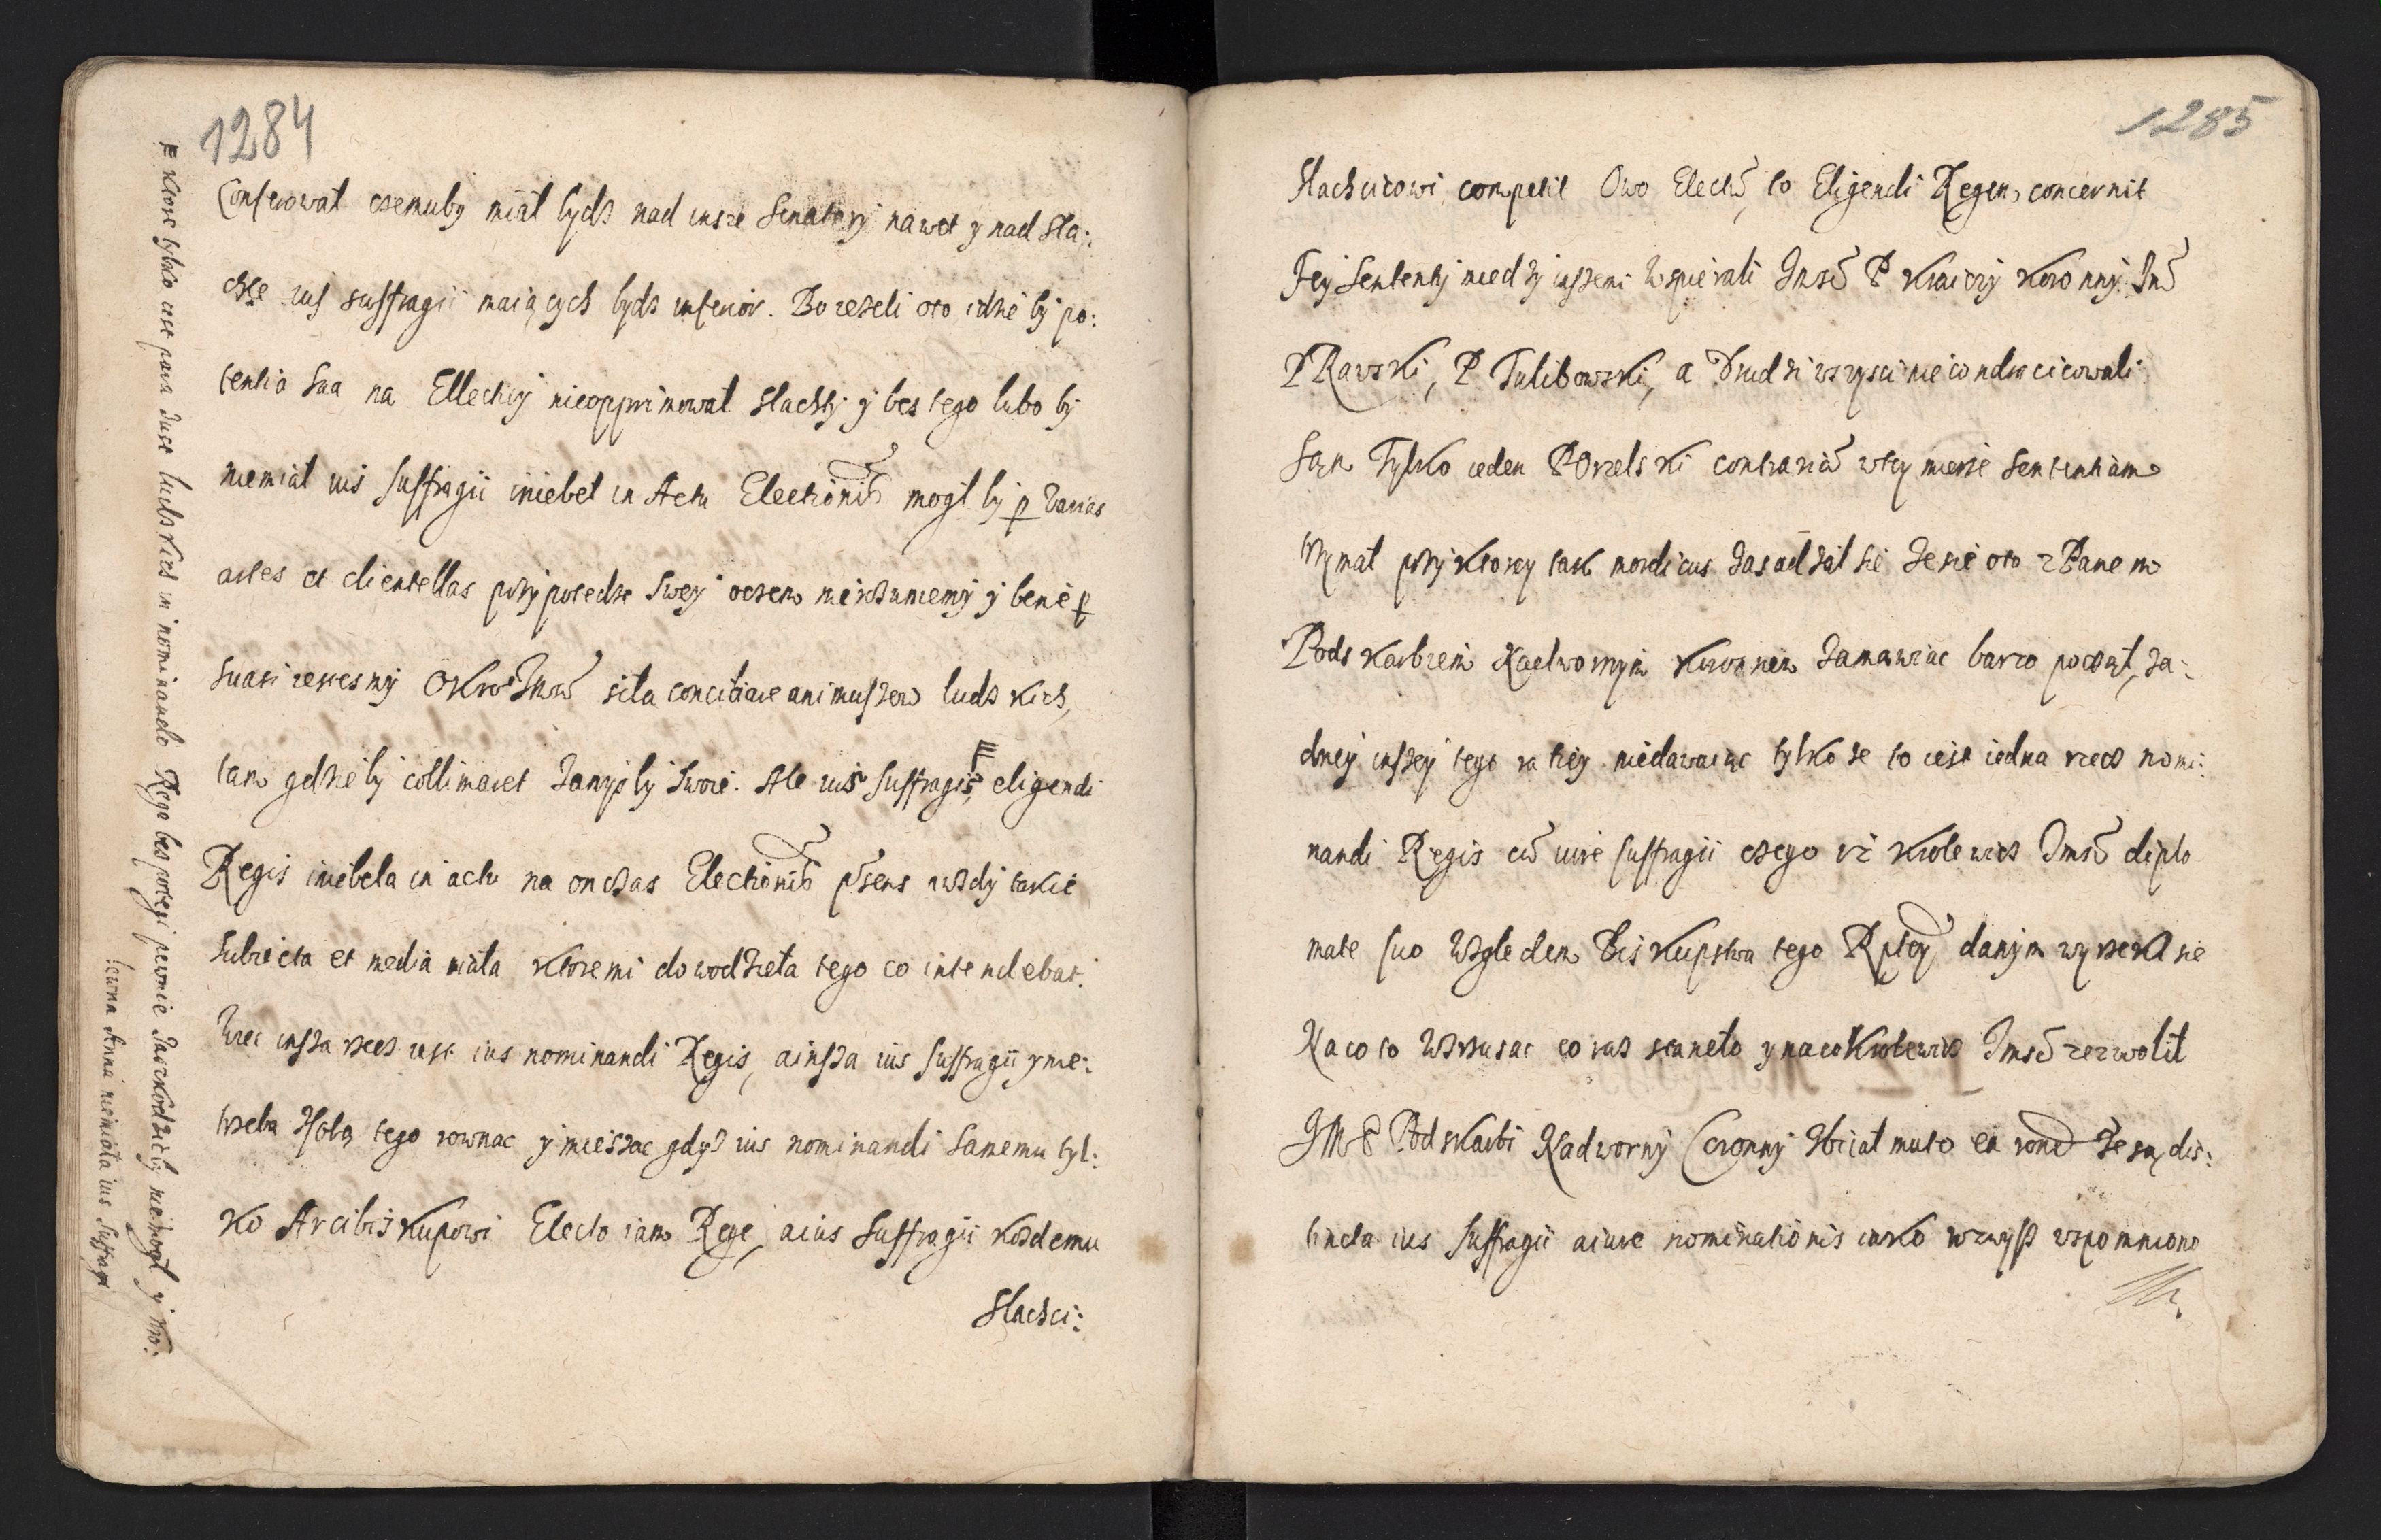 1284
Conferował czemuby miał bydz nad insze Senatory nawet y nad Sla:
chtę ius suffragii maiących bydz inferior. Bo ieżeli oto idzie by po:
tentia sua na Ellectiey nieopprimował Slachty y bez tego lubo by
niemiał ius suffragii iniebeł in Actu Electionis mogł by p varias
artes et clientellas przy potedze swey oczem nierozumiemy y bene p
suasi iestesmy O Krolu Jmci siła concitiare animuszew ludzkich,
tam gdzieby collimaret zamysly swoie. Ale ius suffragii eligendi
Regis iniebela in actu na onczas Electionis psens wzdy takie
subiecta et media miała ktoremi dowodzieła tego co intendebat.
Wiec insza rzecz iest ius nominandi Regis, a insza ius suffragii y nie:
trzeba zsobą tego rownac y mieszac gdyż ius nominandi samemu tyl:
ko Arcibiskupowi Electo iam Rege, a ius suffragii kozdemu
Slachci:
ktore tylko iest para dusz ludzkich in nominando Rege bez potegi pewnie zaszkodzićby niemogł y Kro:
lewna Anna niemiała ius suffragii
1285
Slachcicowi competit Owo Electū, to Eligendi Regem concernit
Tey Sententy miedzy inszemi wspierali Jmsc P Kraiczy Koronny Jmc
P Rawski, P Tulibowski, a Drudzi wszysci nie condradicowali
Sam Tylko ieden P Orzelski contrariā wtey mierze sententiam
trzymał przy ktorey tak mordicus zasadzał sie ze sie oto z Panem
Podskarbiem Nadwornym Koronnem zamawiac barzo poczał, za:
dney inszey tego ratiey niedawaiąc tylko ze to iest iedna rzecz nomi:
nandi Regis cū iure suffragii czego iż Krolewicz Jmsc diplo
mate suo wzgledem Biskupstwa tego Rptey danym wyrzekł sie
Na co to wzrusac co raz staneło y naco Krolewicz Jmsc zezwolił
JM P Podskarbi Nadworny Coronny zbiiał mu to ea rone ze są dis:
tincta ius suffragii a iure nominationis iako wzwysz wspomniono